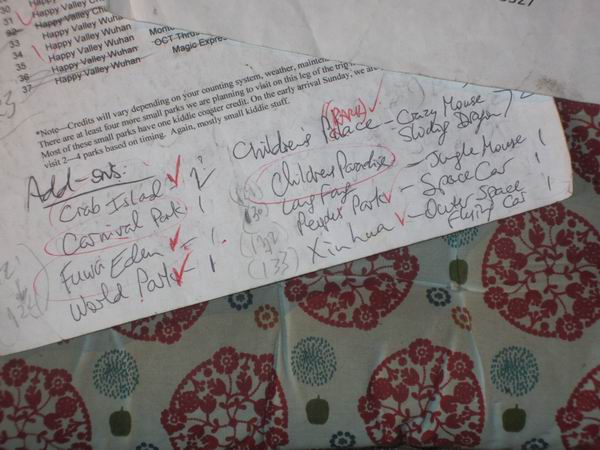 31 Happy Valley
32 Happy Valley
33 Happy Valley Wuhan
34 Happy Valley Wuhan
35 Happy Valley Wuhan OCT Thru
36 Happy Valley Wuhan Magic Expre
37
*Note—Credits will vary depending on your counting system, weather, mainten
There are at least four more small parks we are planning to visit on this leg of the trip
Most of these small parks have one kiddie coaster credit. On the early arrival Sunday, we a
visit 2—4 parks based on timing. Again, mostly small kiddie stuff.
Add-ons:
Crab Island 2
Carnival Park 1
Fuwa Eden - 1
World Park - 1
Children's Palace - Crazy Mouse 2
Sliding Dragon
Children Paradise - Jungle Mouse 1
People Park - Space Car 1
(132)
(133) Xinhua - Outer Space 1
Flying Car